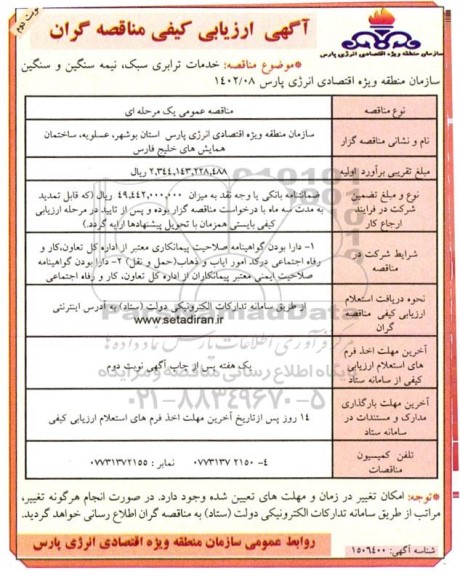 نوبت دوم
آگهی ارزیابی کیفی مناقصه گران
سازمان منطقه ویژه اقتصادی انرژی پارس
*موضوع مناقصه: خدمات ترابری سبک، نیمه سنگین و سنگین
سازمان منطقه ویژه اقتصادی انرژی پارس ۱۴۰۲/۰۸
نوع مناقصه
مناقصه عمومی یک مرحله ای
نام و نشانی مناقصه گزار
سازمان منطقه ویژه اقتصادی انرژی پارس استان بوشهر، عسلویه، ساختمان
همایش های خلیج فارس
مبلغ تقریبی برآورد اولیه
۲,۳۴۴,۱۴۳,۲۲۸,۴۸۸ ریال
نوع و مبلغ تضمین
شرکت در فرایند
ارجاع کار
ضمانتنامه بانکی یا وجه نقد به میزان ۴۹,۴۴۲,۰۰۰,۰۰۰ ریال (که قابل تمدید
به مدت سه ماه با درخواست مناقصه گزار بوده و پس از تایید در مرحله ارزیابی
کیفی بایستی همزمان با تحویل پیشنهادها ارایه گردد.)
شرایط شرکت در
مناقصه
۱- دارا بودن گواهینامه صلاحیت پیمانکاری معتبر از اداره کل تعاون،کار و
رفاه اجتماعی درکد امور ایاب و ذهاب(حمل و نقل) ۲- دارا بودن گواهینامه
صلاحیت ایمنی معتبر پیمانکاران از اداره کل تعاون، کار و رفاه اجتماعی
نحوه دریافت استعلام
ارزیابی کیفی مناقصه
گران
از طریق سامانه تدارکات الکترونیکی دولت (ستاد) به آدرس اینترنتی
www.setadiran.ir
آخرین مهلت اخذ فرم
های استعلام ارزیابی
کیفی از سامانه ستاد
یک هفته پس از چاپ آگهی نوبت دوم
آخرین مهلت بارگذاری
مدارک و مستندات در
سامانه ستاد
۱۴ روز پس ازتاریخ آخرین مهلت اخذ فرم های استعلام ارزیابی کیفی
تلفن کمیسیون
مناقصات
۴- ۲۱۵۰ ۰۷۷۳۱۳۷ نمابر : ۰۷۷۳۱۳۷۲۱۵۵
ParsNamadData
مرکز فرآوری اطلاعات پارس نماد داده ها
پایگاه اطلاع رسانی مناقصه و مزایده
۰۲۱-۸۸۳۴۹۶۷۰-۵
*توجه: امکان تغییر در زمان و مهلت های تعیین شده وجود دارد. در صورت انجام هرگونه تغییر،
مراتب از طریق سامانه تدارکات الکترونیکی دولت (ستاد) به مناقصه گران اطلاع رسانی خواهد گردید.
روابط عمومی سازمان منطقه ویژه اقتصادی انرژی پارس
شناسه آگهی: ۱۵۰۶۴۰۰